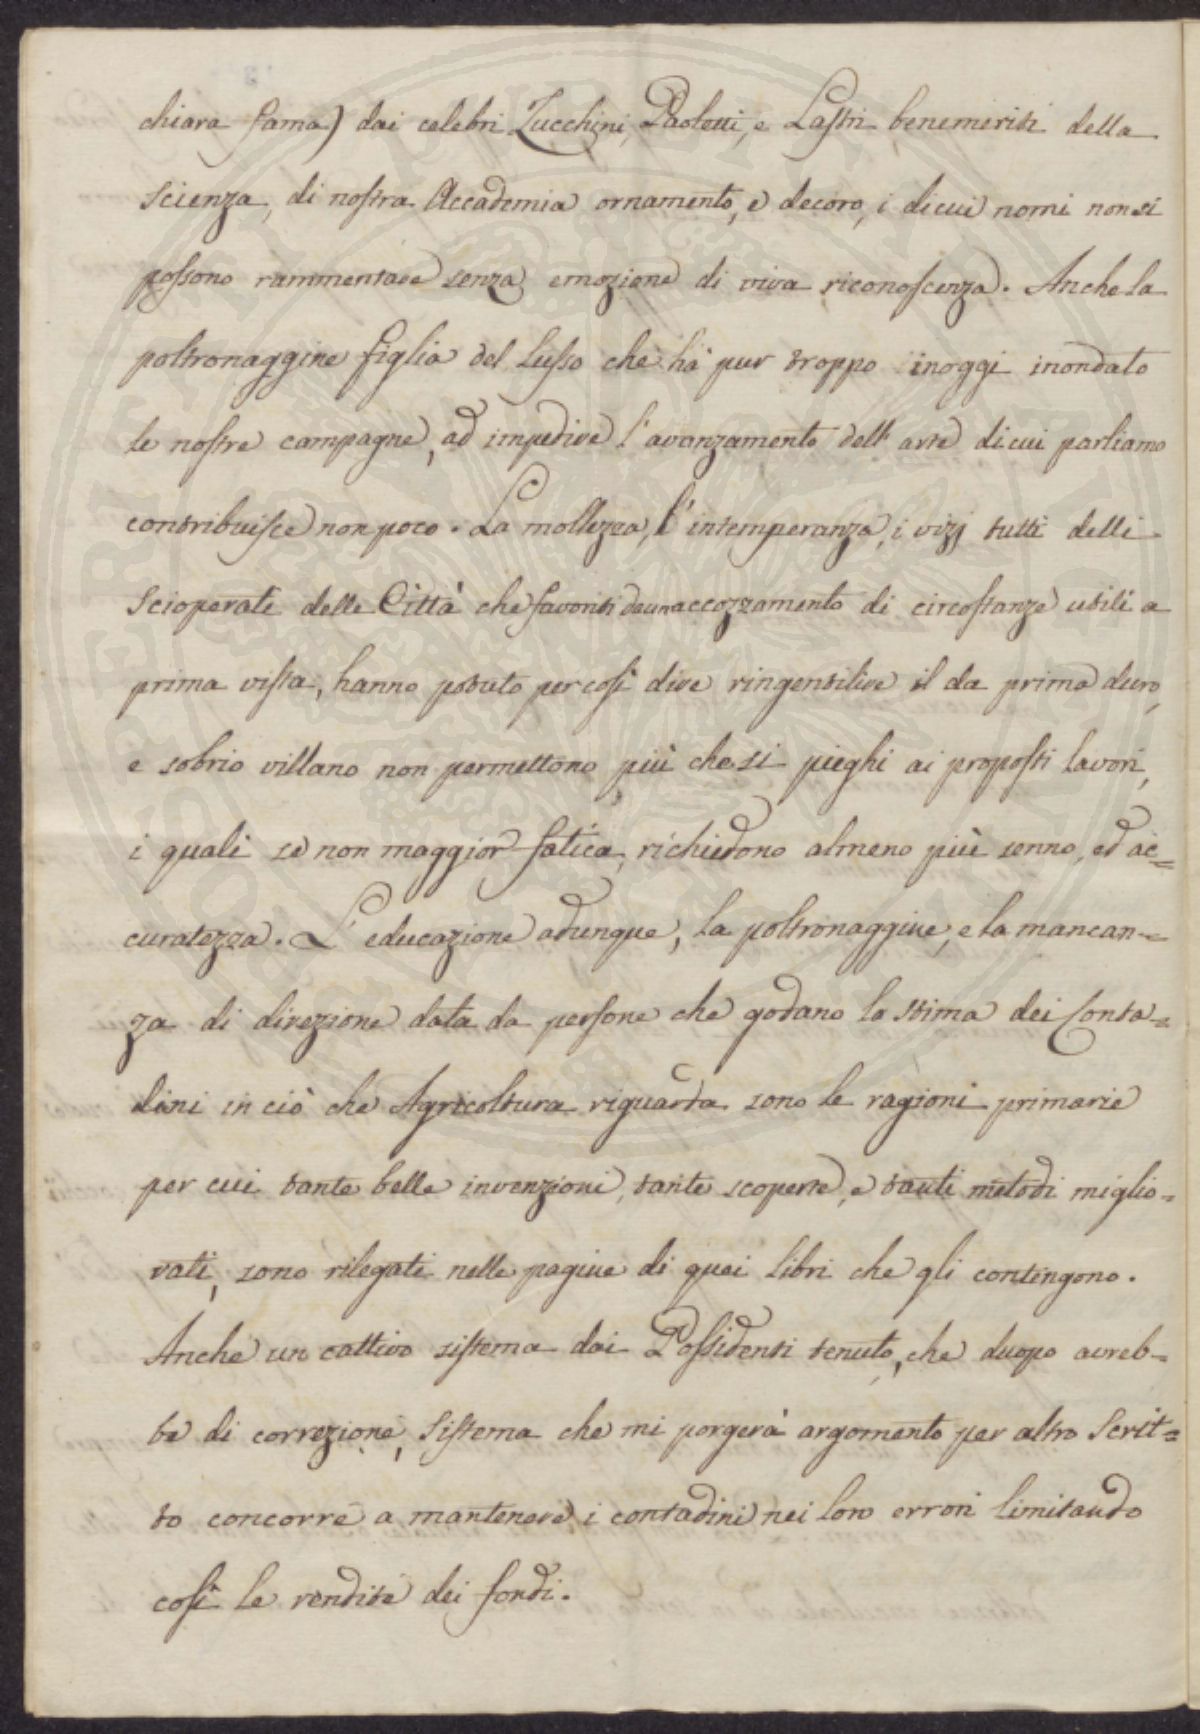 chiara fama) dai celebri Zucchini, Paoletti, e Lastri benemeriti della
scienza, di nostra Accademia ornamento, e decoro, i dicui nomi non si
possono rammentare senza emozione di viva riconoscenza. Anche la
poltronaggine figlia del Lusso che hà pur troppo inoggi inondato
le nostre campagne, ad impedire l'avanzamento dell'arte dicui parliamo
contribuisce non poco. La mollezza, l'intemperanza, i vizj tutti delli
scioperati delle Città che favoriti da un accozzamento di circostanze utili a
prima vista, hanno potuto per così dire ringentilire il da prima duro,
e sobrio villano non permettono più che si pieghi ai proposti lavori,
i quali se non maggior fatica, richiedono almeno più senno, ed ac=
curatezza. L'educazione adunque, la poltronaggine, e la mancan=
za di direzione data da persone che godano la stima dei Conta=
dini in ciò che Agricoltura riguarda sono le ragioni primarie
per cui tante belle invenzioni, tante scoperte, e tanti metodi miglio=
rati, sono rilegati nelle pagine di quei Libri che gli contengono.
Anche un cattivo sistema dai Possidenti tenuto, che duopo avreb=
be di correzione, Sistema che mi porgerà argomento per altro Scrit=
to concorre a mantenere i contadini nei loro errori limitando
così le rendite dei fondi.